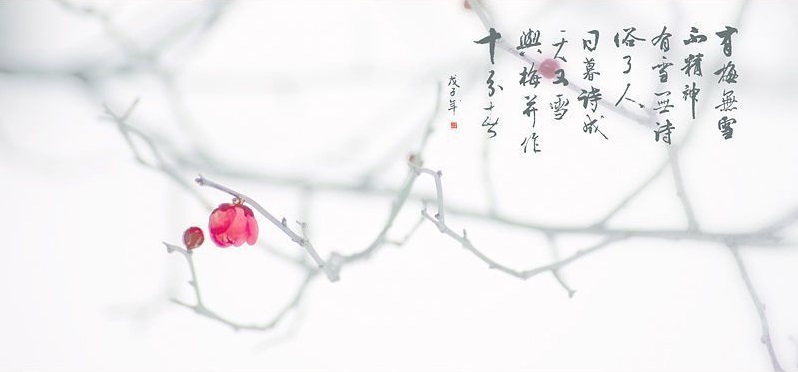 有梅無雪
不精神
有雪無詩
俗了人
日暮詩成
天又雪
與梅并作
十分春
戊子年